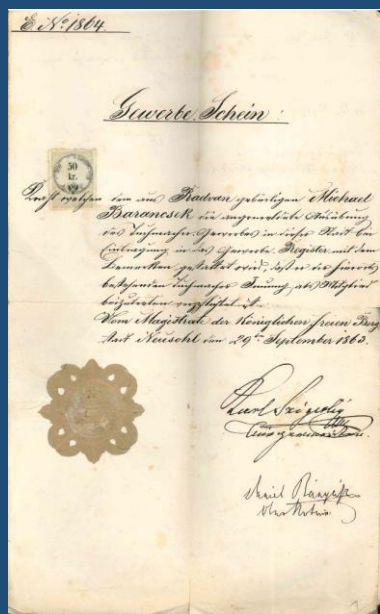 E. No. 1864.
Gewerbe Schein:
50
kr.
Kraft welchen dem aus Radvan gebürtigen Michael
Barancsek die angemeldete Ausübung
des Tuchmacher Gewerbes in dieser Stadt bei
Eintragung in das Gewerbe Register mit dem
Bemerken gestattet wird, daß er der hierorts
bestehenden Tuchmacher Innung als Mitglied
beizutreten verpflichtet ist.
Vom Magistrate der Königlichen freien Berg
stadt Neusohl den 29ten September 1863.
Karl